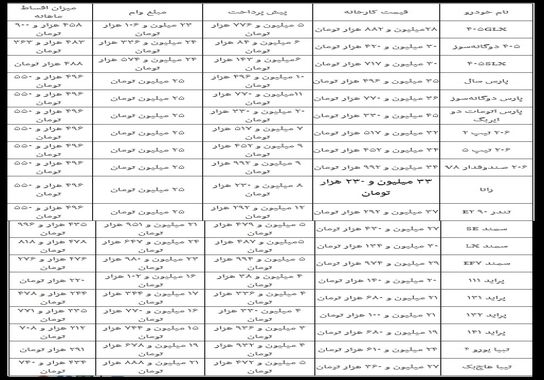 نام خودرو قیمت کارخانه پیش پرداخت مبلغ وام میزان اقساط ماهانه
۴۰۵GLX ۲۸میلیون و ۸۸۲ هزار تومان ۵ میلیون و ۷۷۶ هزار تومان ۲۳ میلیون و ۱۰۶ هزار تومان ۴۵۸ هزار و ۹۰۰ تومان
۴۰۵ دوگانه‌سوز ۳۰ میلیون و ۴۲۰ هزار تومان ۶ میلیون و ۸۴ هزار تومان ۲۴ میلیون و ۳۳۶ هزار تومان
۴۰۵SLX ۳۰ میلیون و ۷۱۷ هزار تومان ۶میلیون و ۱۴۳ هزار تومان ۲۴ میلیون و ۵۷۴ هزار تومان ۴۸۸ هزار تومان
پارس سال ۳۵ میلیون و ۴۹۶ هزار تومان ۱۰ میلیون و ۴۹۶ هزار تومان ۲۵ میلیون تومان ۴۹۶ هزار و ۵۵۰ تومان
پارس دوگانه‌سوز ۳۶ میلیون و ۷۷۰ هزار تومان ۱۱میلیون و ۷۷۰ هزار تومان ۲۵ میلیون تومان ۴۹۶ هزار و ۵۵۰ تومان
پارس اتومات دو ایربگ ۴۵ میلیون و ۳۳۰ هزار تومان ۲۰ میلیون و ۳۳۰ هزار تومان ۲۵ میلیون تومان ۴۹۶ هزار و ۵۵۰ تومان
۲۰۶ تیپ ۲ ۳۲ میلیون و ۵۱۷ هزار تومان ۷ میلیون و ۵۱۷ هزار تومان ۲۵ میلیون تومان ۴۹۶ هزار و ۵۵۰ تومان
۲۰۶ تیپ ۵ ۳۴ میلیون و ۴۵۲ هزار تومان ۹ میلیون و ۴۵۲ هزار تومان ۲۵ میلیون تومان ۴۹۶ هزار و ۵۵۰ تومان
۲۰۶ صندوقدار ۷۸ ۳۴ میلیون و ۹۹۲ هزار تومان ۹ میلیون و ۹۹۲ هزار تومان ۲۵ میلیون تومان ۴۹۶ هزار و ۵۵۰ تومان
رانا ۳۳ میلیون و ۲۳۰ هزار تومان ۸ میلیون و ۲۳۰ هزار تومان ۲۵ میلیون تومان ۴۹۶ هزار و ۵۵۰ تومان
تندر ۹۰ E2 ۳۷ میلیون و ۲۹۲ هزار تومان ۱۲ میلیون و ۲۹۲ هزار تومان ۲۵ میلیون تومان ۴۹۶ هزار و ۵۵۰ تومان
سمند SE ۲۷ میلیون و ۴۳۰ هزار تومان ۵ میلیون و ۴۷۹ هزار تومان ۲۱ میلیون و ۹۵۱ هزار تومان ۴۳۵ هزار و ۹۹۶ تومان
سمند LX ۳۰ میلیون و ۱۳۴ هزار تومان ۵میلیون و ۴۸۷ هزار تومان ۲۴ میلیون و ۶۴۷ هزار تومان ۴۷۸ هزار و ۸۱۸ تومان
سمند EF7 ۲۹ میلیون و ۹۷۴ هزار تومان ۵ میلیون و ۹۹۴ هزار تومان ۲۳ میلیون و ۹۸۰ هزار تومان ۴۷۶ هزار و ۲۷۶ تومان
پراید ۱۱۱ ۲۰ میلیون و ۱۴۰ هزار تومان ۴ میلیون و ۳۸ هزار تومان ۱۶ میلیون و ۱۰۲ هزار تومان ۳۲۰ هزار تومان
پراید ۱۳۱ ۲۱ میلیون و ۶۸۰ هزار تومان ۴ میلیون و ۳۳۶ هزار تومان ۱۷ میلیون و ۳۴۴ هزار تومان ۳۴۴ هزار و ۴۷۸ تومان
پراید ۱۳۲ ۲۱ میلیون و ۱۰۰ هزار تومان ۴ میلیون و ۳۳۰ هزار تومان ۱۶ میلیون و ۷۷۰ هزار تومان ۳۳۵ هزار و ۷۷۱ تومان
پراید ۱۴۱ ۱۹ میلیون و ۶۸۰ هزار تومان ۳ میلیون و ۹۳۶ هزار تومان ۱۵ میلیون و ۷۴۴ هزار تومان ۳۱۲ هزار و ۷۰۸ تومان
تیبا یورو ۴ ۲۴ میلیون و ۶۱۰ هزار تومان ۴ میلیون و ۹۳۲ هزار تومان ۱۹ میلیون و ۶۷۸ هزار تومان ۳۹۱ هزار تومان
تیبا هاچ‌بک ۲۷ میلیون و ۳۶۰ هزار تومان ۵ میلیون و ۴۷۲ هزار تومان ۲۱ میلیون و ۸۸۸ هزار تومان ۴۳۴ هزار و ۷۴۰ تومان